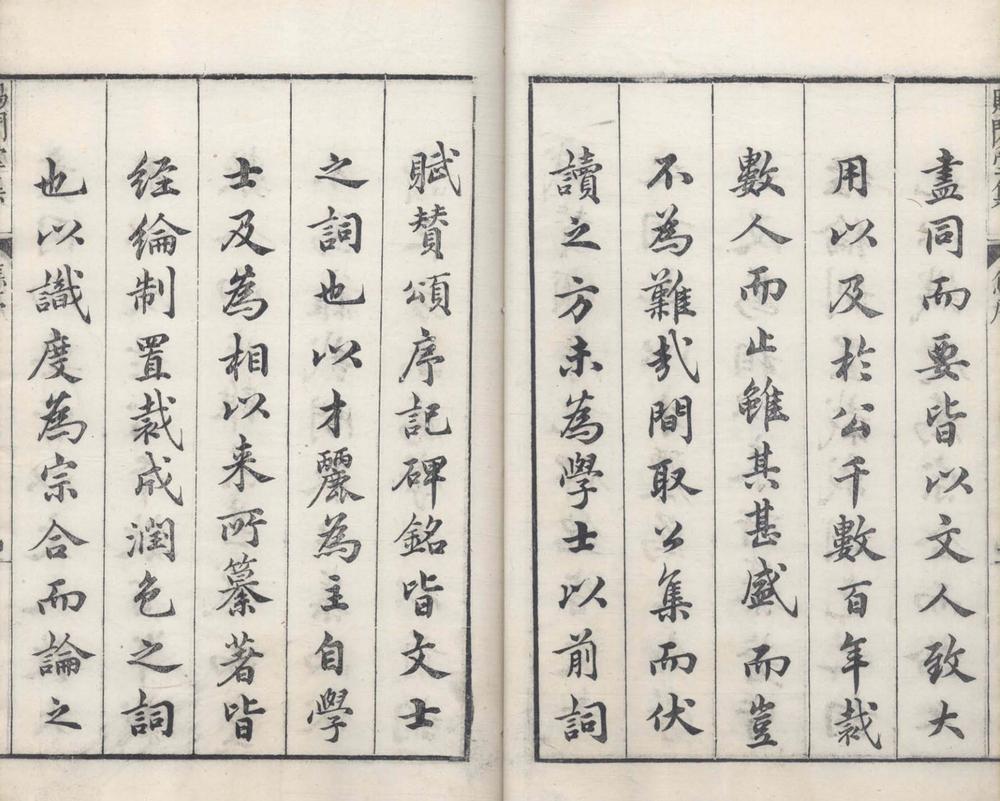 盡同而要皆以文人致大
用以及於公千數百年裁
數人而止雖其甚盛而豈
不為難哉間取公集而伏
讀之方未為學士以前詞
賦贊頌序記碑銘皆文士
之詞也以才麗為主自學
士及為相以来所纂著皆
经綸制置裁成潤色之詞
也以識度為宗合而論之